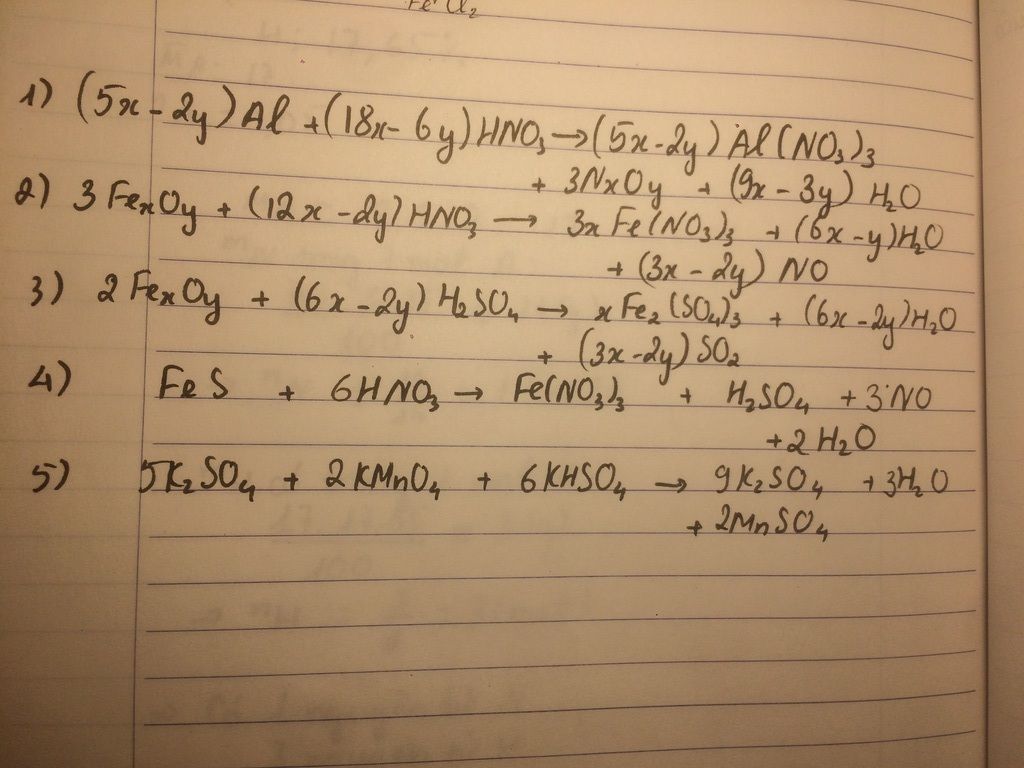 FeCl₂
1) (5x-2y)Al + (18x-6y)HNO₃ → (5x-2y)Al(NO₃)₃
+ 3NxOy + (9x-3y) H₂O
2) 3FexOy + (12x-2y)HNO₃ → 3xFe(NO₃)₃ + (6x-y)H₂O
+ (3x-2y) NO
3) 2FexOy + (6x-2y) H₂SO₄ → xFe₂(SO₄)₃ + (6x-2y)H₂O
+ (3x-2y) SO₂
4) FeS + 6HNO₃ → Fe(NO₃)₃ + H₂SO₄ + 3NO
+ 2H₂O
5) 5K₂SO₄ + 2KMnO₄ + 6KHSO₄ → 9K₂SO₄ + 3H₂O
+ 2MnSO₄